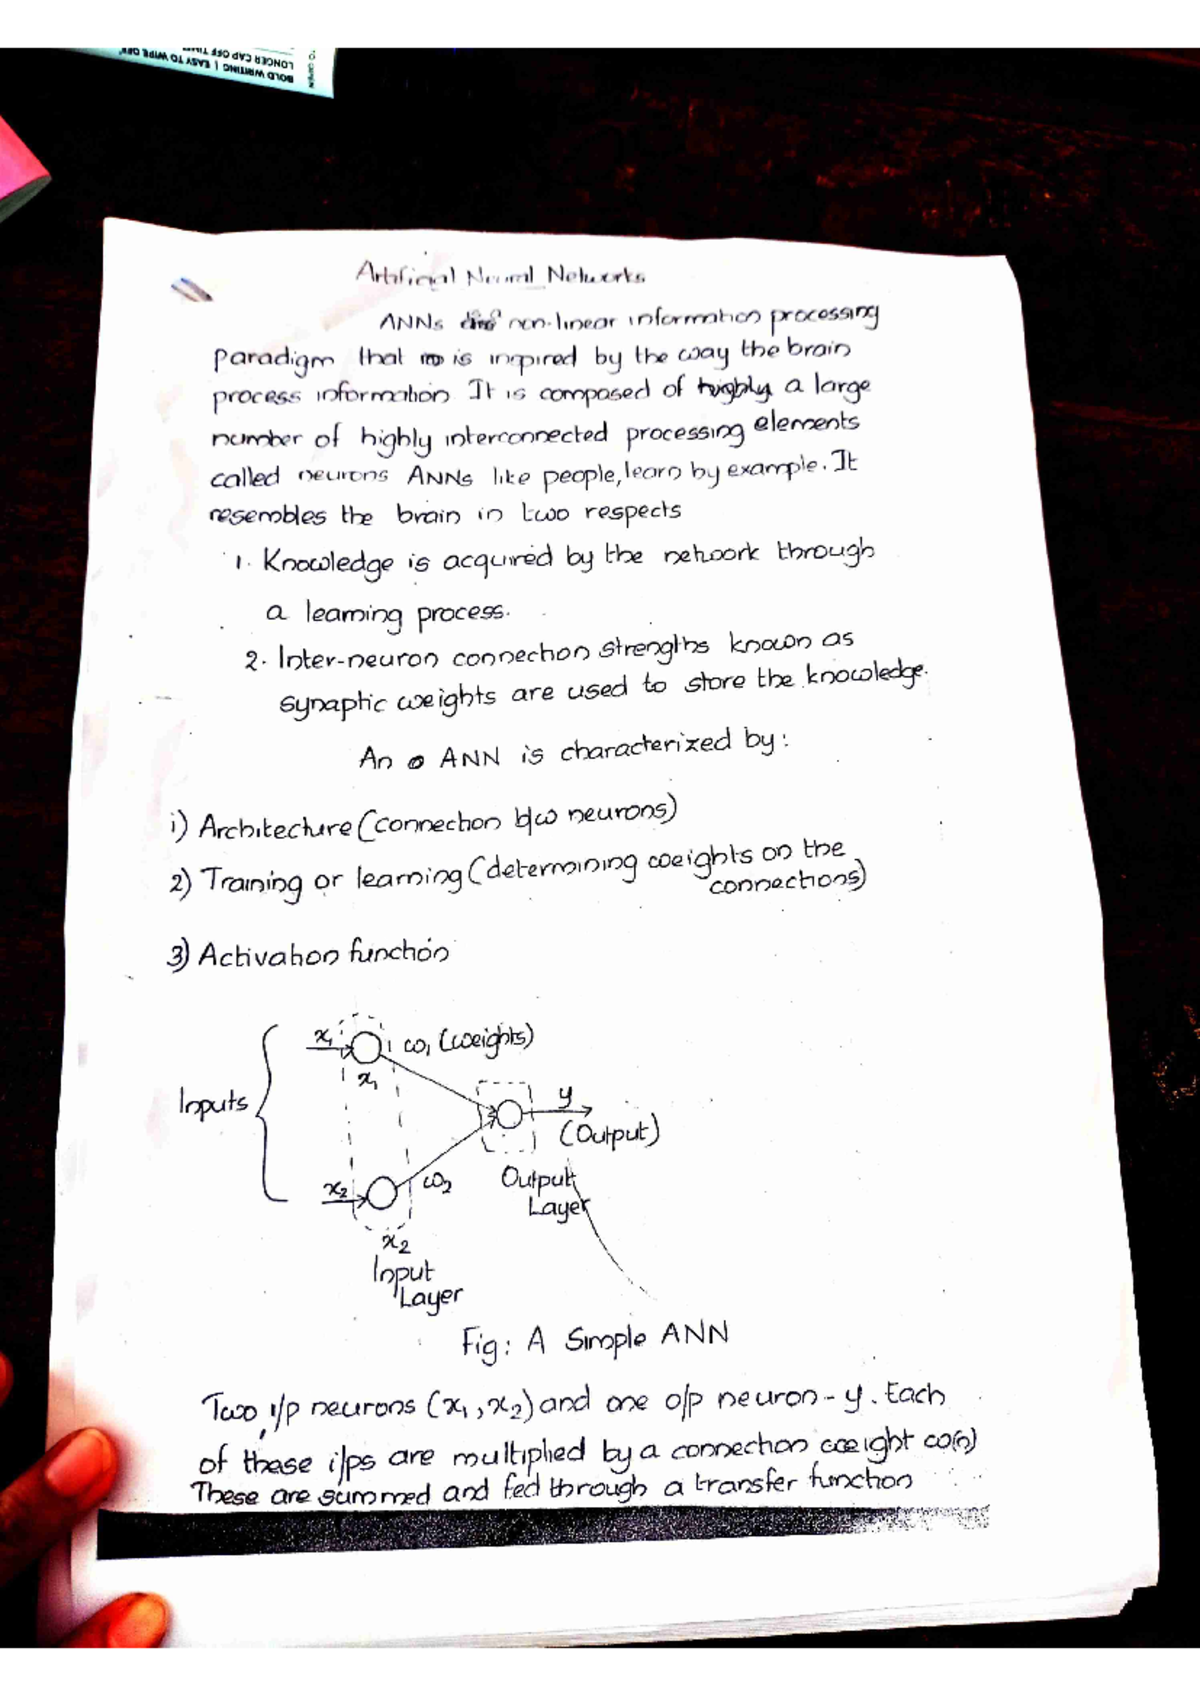 BOLD WRITING | EASY TO WIPE OFF
LONGER CAP OFF TIME
TO OPEN
Artificial Neural Networks
ANNs non-linear information processing
paradigm that is inspired by the way the brain
process information It is composed of highly a large
number of highly interconnected processing elements
called neurons ANNs like people, learn by example. It
resembles the brain in two respects
1. Knowledge is acquired by the network through
a learning process.
2. Inter-neuron connection strengths known as
synaptic weights are used to store the knowledge.
An ANN is characterized by:
1) Architecture (connection b/w neurons)
2) Training or learning (determining weights on the
connections)
3) Activation function
Inputs
x1
w1 (weights)
x1
y
(Output)
x2
w2
Output
Layer
x2
Input
Layer
Fig: A Simple ANN
Two i/p neurons (x1, x2) and one o/p neuron - y. Each
of these i/ps are multiplied by a connection weight w(n)
These are summed and fed through a transfer function